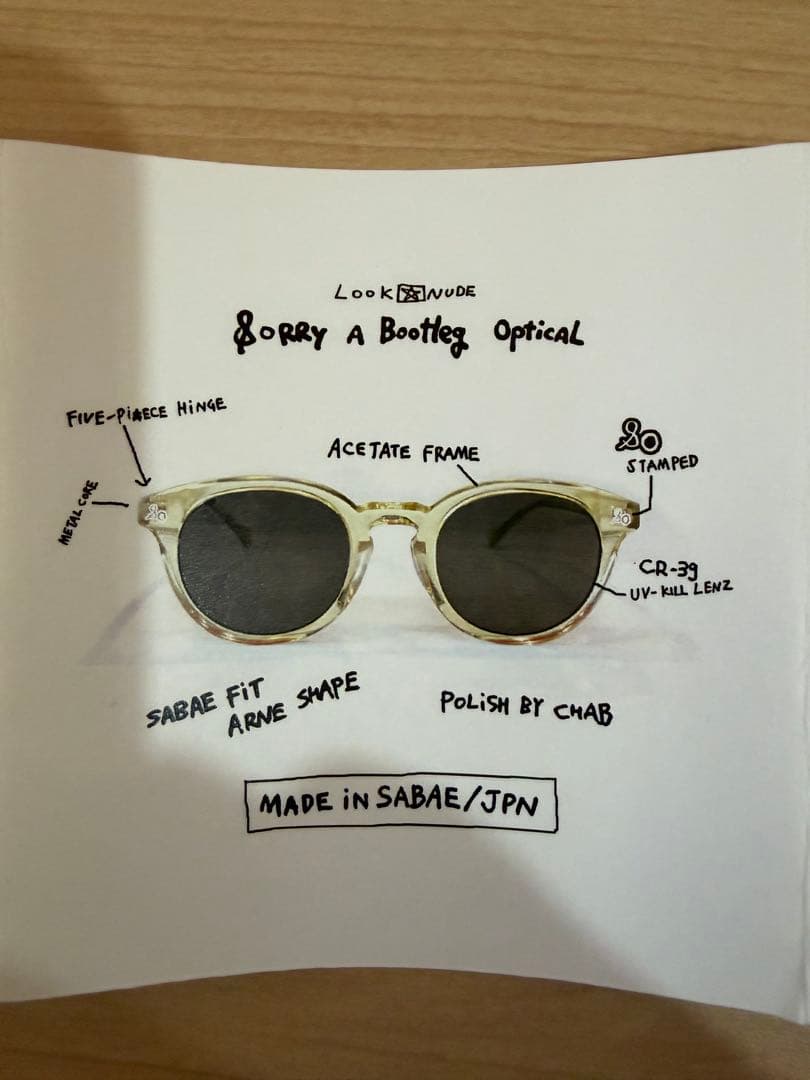 LOOK NUDE
SORRY A Bootleg Optical
FIVE-PIECE HINGE
ACETATE FRAME
So
STAMPED
METAL CORE
So
So
CR-39
UV-KILL LENZ
SABAE FiT
ARNE SHAPE
POLiSH BY CHAB
MADE iN SABAE/JPN